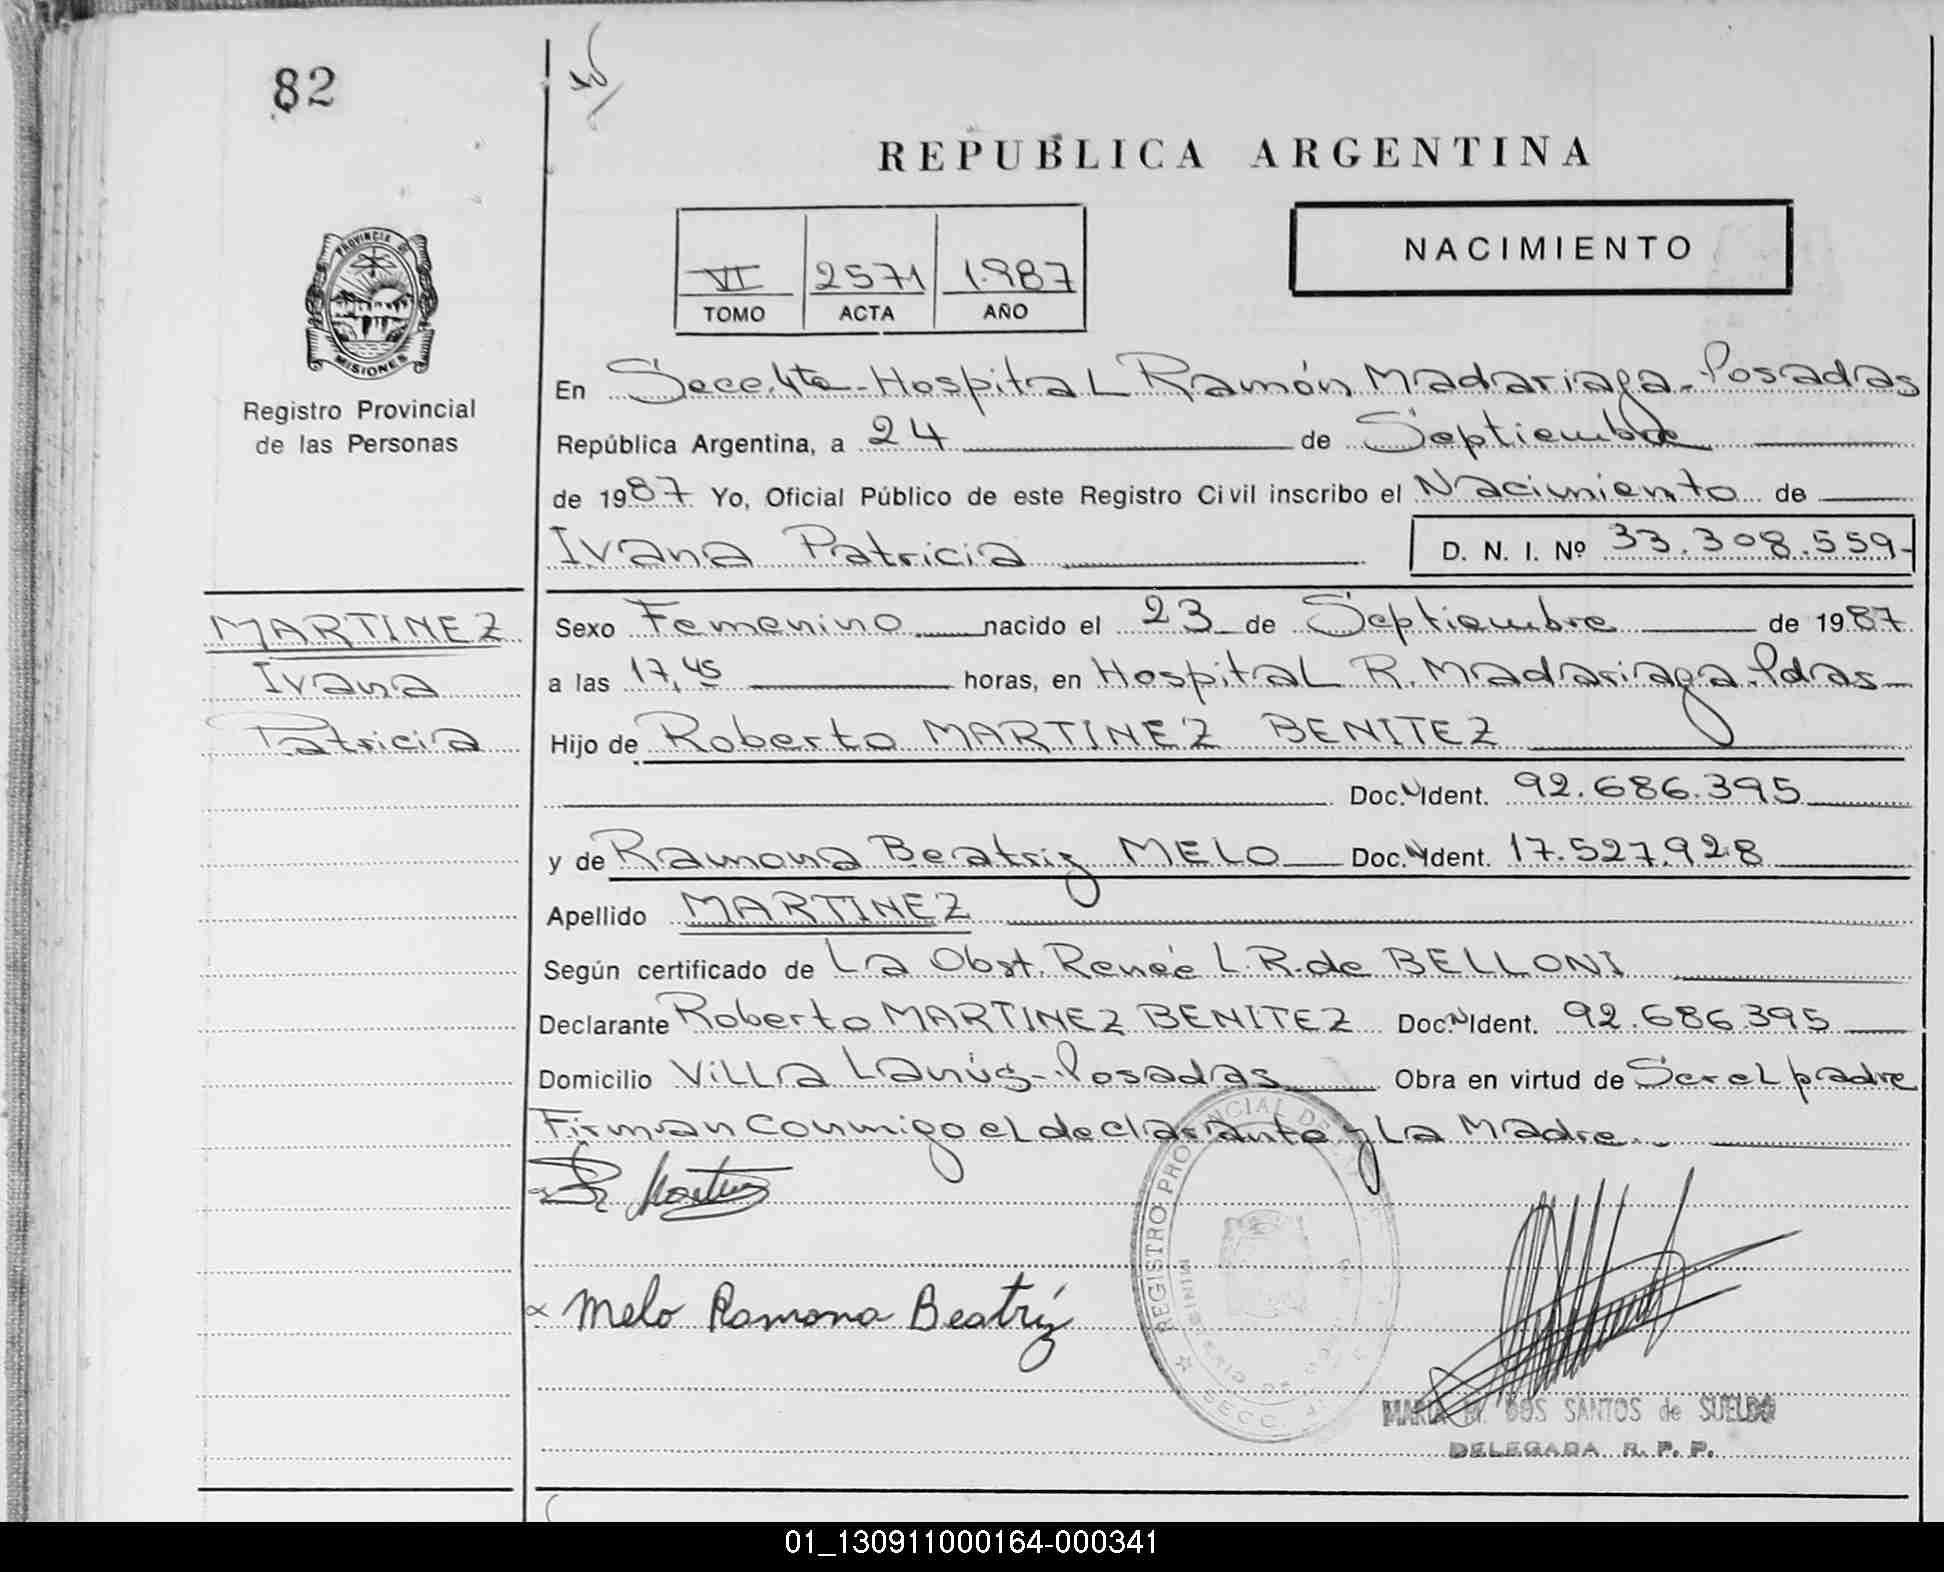 82
REPUBLICA ARGENTINA
VI 2571 1.987
TOMO ACTA AÑO
NACIMIENTO
PROVINCIA DE
MISIONES
Registro Provincial
de las Personas
En Secc. 4ta - Hospital Ramón Madariaga - Posadas
República Argentina, a 24 de Septiembre
de 1987 Yo, Oficial Público de este Registro Civil inscribo el Nacimiento de
Ivana Patricia D. N. I. Nº 33.308.559-
MARTINEZ
Ivana
Patricia
Sexo Femenino nacido el 23 de Septiembre de 1987
a las 17,45 horas, en Hospital R. Madariaga. Pdas
Hijo de Roberto MARTINEZ BENITEZ
Doc. N Ident. 92.686.395
y de Ramona Beatriz MELO Doc. N Ident. 17.527.928
Apellido MARTINEZ
Según certificado de La Obst. Renée L. R. de BELLONI
Declarante Roberto MARTINEZ BENITEZ Doc. N Ident. 92.686.395
Domicilio Villa Lanús - Posadas Obra en virtud de Ser el padre
Firman conmigo el declarante y La Madre.
Melo Ramona Beatríz
REGISTRO PROVINCIAL DE
SECC. 4
MARIA DOS SANTOS de SUELDO
DELEGADA R. P. P.
01_130911000164-000341